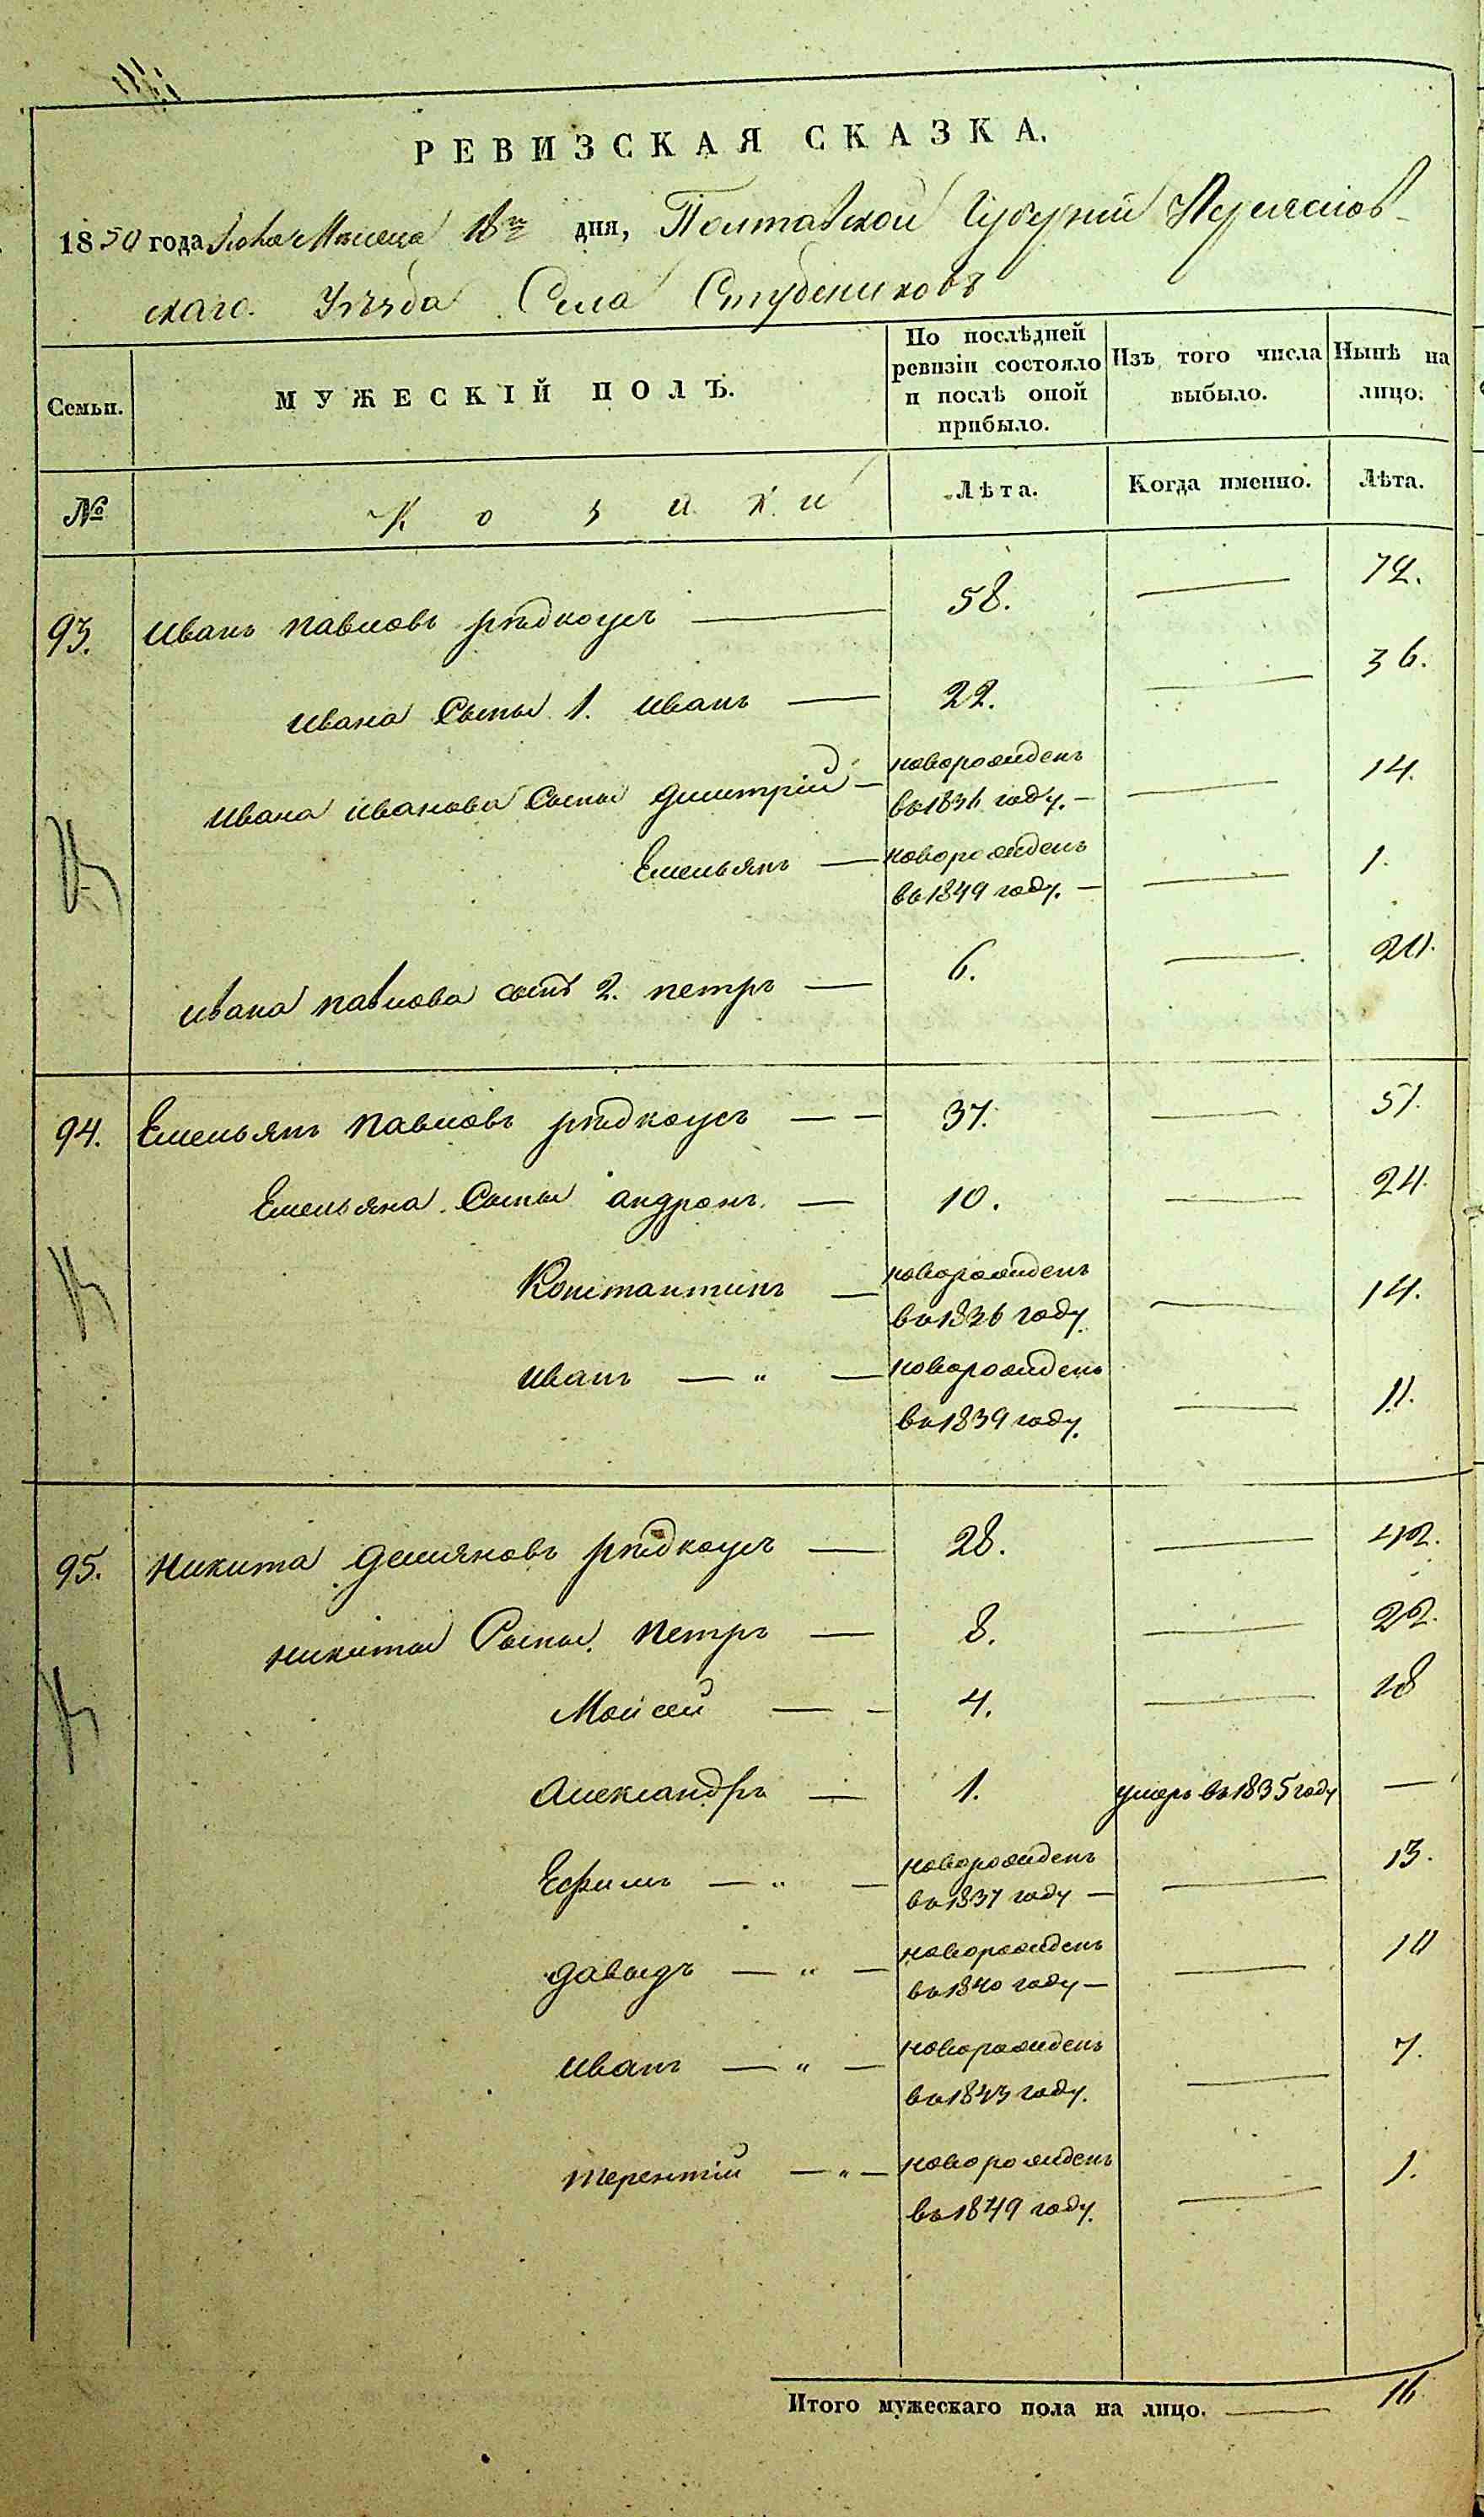 РЕВИЗСКАЯ СКАЗКА.
1850 года Мѣсяца 18го дня, Полтавской Губерніи Переяслов-
скаго Уѣзда Села Студениковъ
Семьи. МУЖЕСКІЙ ПОЛЪ. По послѣдней ревизіи состояло и послѣ оной прибыло. Изъ того числа выбыло. Нынѣ на лицо.
№ Козаки Лѣта. Когда именно. Лѣта.
93. Иванъ Павловъ рѣдкоусъ — 58. — 72.
Ивана Сыны 1. Иванъ — 22. — 36.
Ивана Иванова Сыны Дмитрій — новорожденъ въ 1836 году. — — 14.
Емельянъ — новорожденъ въ 1849 году. — — 1.
Ивана Павлова сынъ 2. Петръ — 6. — 20.
94. Емельянъ Павловъ рѣдкоусъ — — 37. — 51.
Емельяна Сыны Андронъ. — 10. — 24.
Константинъ — новорожденъ въ 1836 году. — 14.
Иванъ — „ — новорожденъ въ 1839 году. — 11.
95. Никита Демяновъ рѣдкоусъ — 28. — 42.
Никиты Сыны. Петръ — 8. — 22.
Моисей — — 4. — 18
Александръ — 1. умеръ въ 1835 году —
Ефимъ — „ — новорожденъ въ 1837 году — — 13.
Давыдъ — „ — новорожденъ въ 1840 году — — 10
Иванъ — „ — новорожденъ въ 1843 году. — 7.
Терентій — „ — новорожденъ въ 1849 году. — 1.
Итого мужескаго пола на лицо. — 16